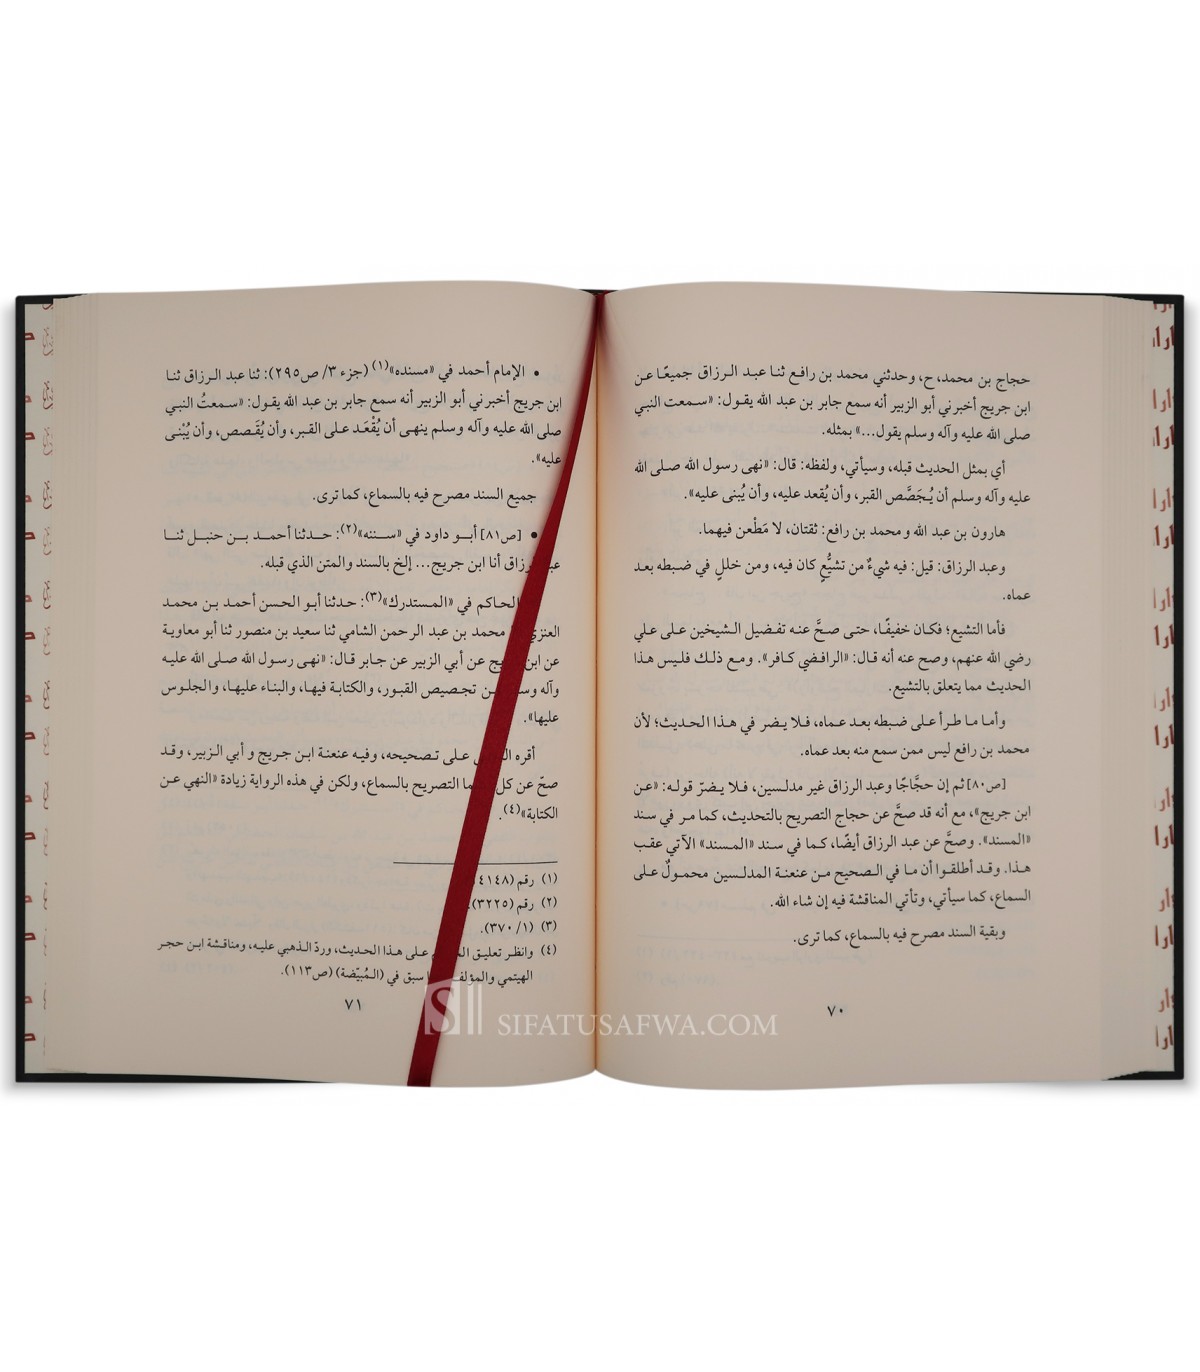 حجاج بن محمد، ح، وحدثني محمد بن رافع ثنا عبد الرزاق جميعًا عن
ابن جريج أخبرني أبو الزبير أنه سمع جابر بن عبد الله يقول: «سمعت النبي
صلى الله عليه وآله وسلم يقول...» بمثله.
أي بمثل الحديث قبله، وسيأتي، ولفظه: قال: «نهى رسول الله صلى الله
عليه وآله وسلم أن يُجَصَّص القبر، وأن يُقعد عليه، وأن يُبنى عليه».
هارون بن عبد الله ومحمد بن رافع: ثقتان، لا مَطْعن فيهما.
وعبد الرزاق: قيل: فيه شيءٌ من تشيُّعٍ كان فيه، ومن خللٍ في ضبطه بعد
عماه.
فأما التشيع؛ فكان خفيفًا، حتى صحَّ عنه تفضيل الشيخين على علي
رضي الله عنهم، وصح عنه أنه قال: «الرافضي كافر». ومع ذلك فليس هذا
الحديث مما يتعلق بالتشيع.
وأما ما طرأ على ضبطه بعد عماه، فلا يضر في هذا الحديث؛ لأن
محمد بن رافع ليس ممن سمع منه بعد عماه.
[ص٨٠] ثم إن حجَّاجًا وعبد الرزاق غير مدلسين، فلا يضرّ قوله: «عن
ابن جريج»، مع أنه قد صحَّ عن حجاج التصريح بالتحديث، كما مر في سند
«المسند». وصحَّ عن عبد الرزاق أيضًا، كما في سند «المسند» الآتي عقب
هذا. وقد أطلقوا أن ما في الصحيح من عنعنة المدلسين محمولٌ على
السماع، كما سيأتي، وتأتي المناقشة فيه إن شاء الله.
وبقية السند مصرح فيه بالسماع، كما ترى.
٧٠
• الإمام أحمد في «مسنده»(١) (جزء ٣/ ص٢٩٥): ثنا عبد الرزاق ثنا
ابن جريج أخبرني أبو الزبير أنه سمع جابر بن عبد الله يقول: «سمعتُ النبي
صلى الله عليه وآله وسلم ينهى أن يُقْعَد على القبر، وأن يُقَصص، وأن يُبْنى
عليه».
جميع السند مصرح فيه بالسماع، كما ترى.
• [ص٨١] أبو داود في «سننه»(٢): حدثنا أحمد بن حنبل ثنا
رزاق أنا ابن جريج... إلخ بالسند والمتن الذي قبله.
الحاكم في «المستدرك»(٣): حدثنا أبو الحسن أحمد بن محمد
العنزي محمد بن عبد الرحمن الشامي ثنا سعيد بن منصور ثنا أبو معاوية
عن ابن عن أبي الزبير عن جابر قال: «نهى رسول الله صلى الله عليه
وآله تجصيص القبور، والكتابة فيها، والبناء عليها، والجلوس
عليها».
أقره على تصحيحه، وفيه عنعنة ابن جريج و أبي الزبير، وقد
صحّ عن التصريح بالسماع، ولكن في هذه الرواية زيادة «النهي عن
الكتابة»(٤).
(١) رقم (١٤١٤٨
(٢) رقم (٣٢٢٥).
(٣) (١/ ٣٧٠).
(٤) وانظر تعليق على هذا الحديث، وردّ الذهبي عليه، ومناقشة ابن حجر
الهيتمي والمؤلف سبق في (المُبيّضة) (ص١١٣).
٧١
SIFATUSAFWA.COM